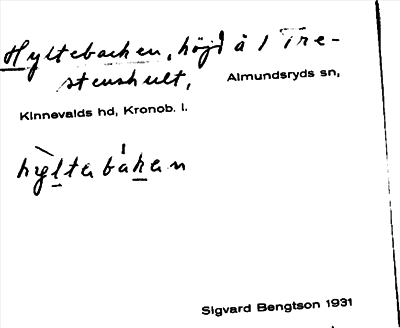 Hyltebacken, höjd å 1 Tre-
stenshult, Almundsryds sn,
Kinnevalds hd, Kronob. l.
hỳltabákan
Sigvard Bengtson 1931